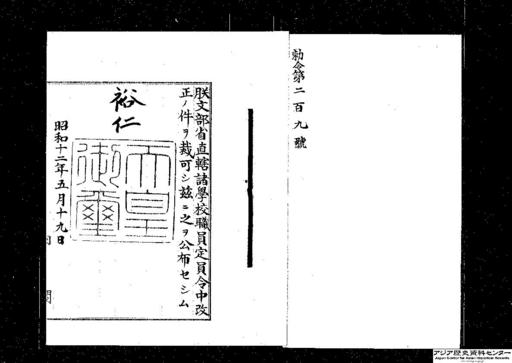 勅令第二百九號
朕文部省直轄諸學校職員定員令中改
正ノ件ヲ裁可シ茲ニ之ヲ公布セシム
裕仁
天皇
御璽
昭和十二年五月十九日
アジア歴史資料センター
Japan Center for Asian Historical Records